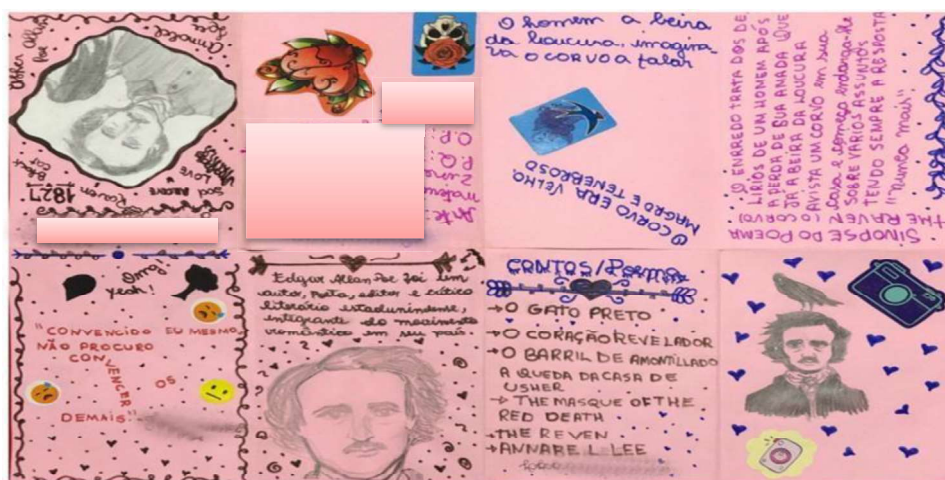 Edgar
Allan
Poe
Arnold
Black
Cat
Raven
LOVE
1827
Arte:
O.P.:
P.Q.:
Zine
O homem a beira
da loucura, imagina-
va O CORVO a falar
O CORVO ERA VELHO,
MAGRO E TENEBROSO
SINOPSE DO POEMA
THE RAVEN (O CORVO)
O ENRREDO TRATA DOS DE
LÍRIOS DE UM HOMEM APÓS
A PERDA DE SUA AMADA QUE
JÁ A BEIRA DA LOUCURA
AVISTA UM CORVO EM SUA
casa e começa indaga-lo
SOBRE VÁRIOS ASSUNTOS
TENDO SEMPRE A RESPOSTA
"Nunca mais".
Omg!
yeah!
"CONVENCIDO EU MESMO,
NÃO PROCURO
CONVENCER OS
DEMAIS"
Edgar Allan Poe foi um
autor, poeta, editor e crítico
literário estadunidense,
integrante do movimento
romântico em seu país.
CONTOS/Poemas
→O GATO PRETO
→O CORAÇÃO REVELADOR
→O BARRIL DE AMONTILLADO
A QUEDA DA CASA DE
USHER
→ THE MASQUE OF THE
RED DEATH
→THE REVEN
→ANNABE L LEE